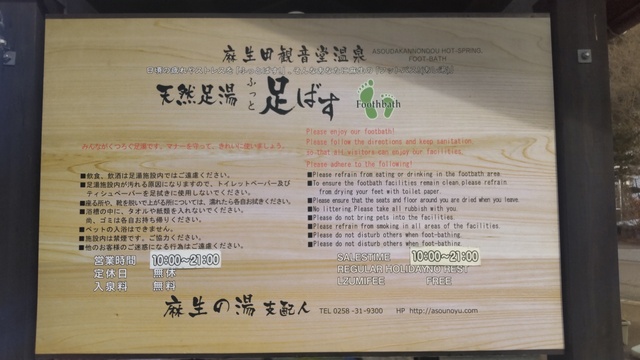 麻生田観音堂温泉 ASOUDAKANNONDOU HOT-SPRING,
FOOT-BATH
天然足湯 足ばす
ふっと
Foothbath
みちながくつろぐ足湯です。マナーを守って、きれいに使いましょう。
Please enjoy our footbath!
Please follow the directions and keep sanitation,
so that all visitors can enjoy our facilities.
Please adhere to the following!
■飲食、飲酒は足湯施設内ではご遠慮ください。
■足湯施設内が汚れる原因になりますので、トイレットペーパー及び
ティシュペーパーを足拭きに使用しないでください。
■座る所や、靴を脱いで上がる所については、濡れたら各自お拭きください。
■浴槽の中に、タオルや紙類を入れないでください。
尚、ゴミは各自お持ち帰りください。
■ペットの入浴はできません。
■施設内は禁煙です。ご協力ください。
■他のお客様のご迷惑になる行為はご遠慮ください。
■Please refrain from eating or drinking in the footbath area
■To ensure the footbath facilities remain clean,please refrain
from drying your feet with toilet paper.
■Please ensure that the seats and floor around you are dried when you leave.
■No littering.Please take all rubbish with you.
■Please do not bring pets into the facilities.
■Please refrain from smoking in all areas of the facilities.
■Please do not disturb others when foot-bathing.
■Please do not disturb others when foot-bathing.
営業時間 10:00~21:00
定休日 無休
入泉料 無料
SALESTIME 10:00~21:00
REGULAR HOLIDAYNO REST
LZUMIFEE FREE
麻生の湯 支配人 TEL 0258-31-9300 HP http://asounoyu.com